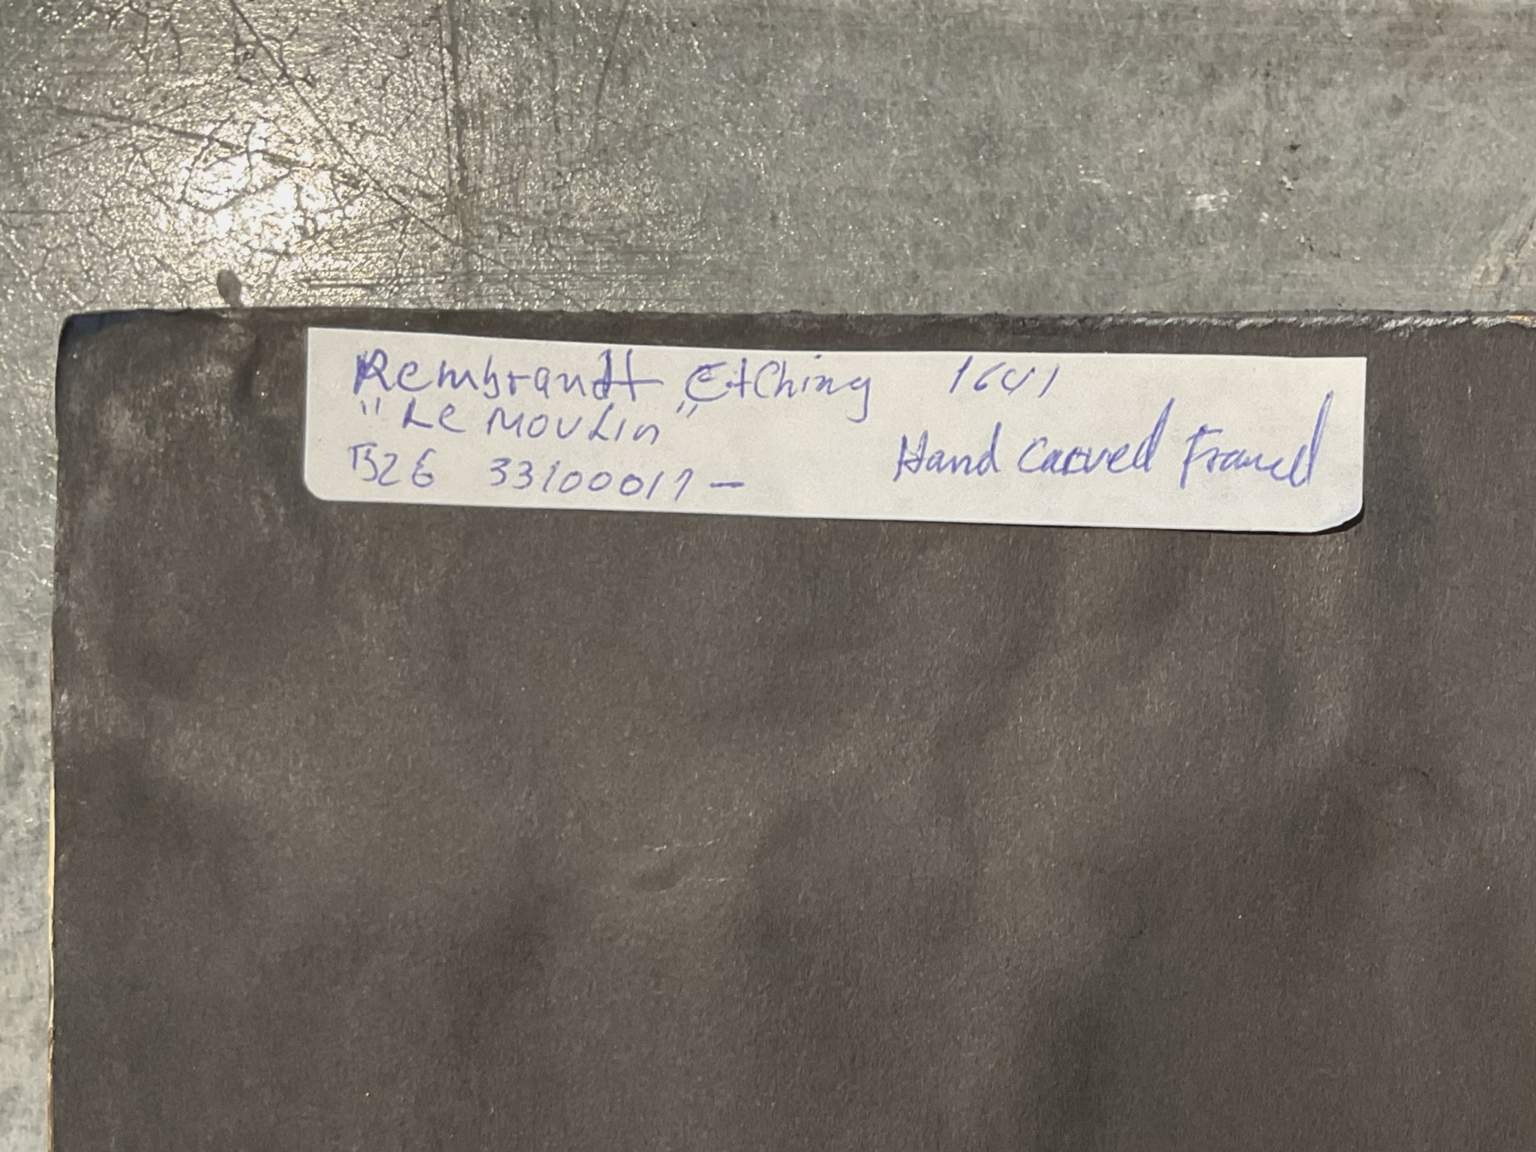 Rembrandt Etching 1641
"Le Moulin"
B26 33100017 –
Hand Carved Framed